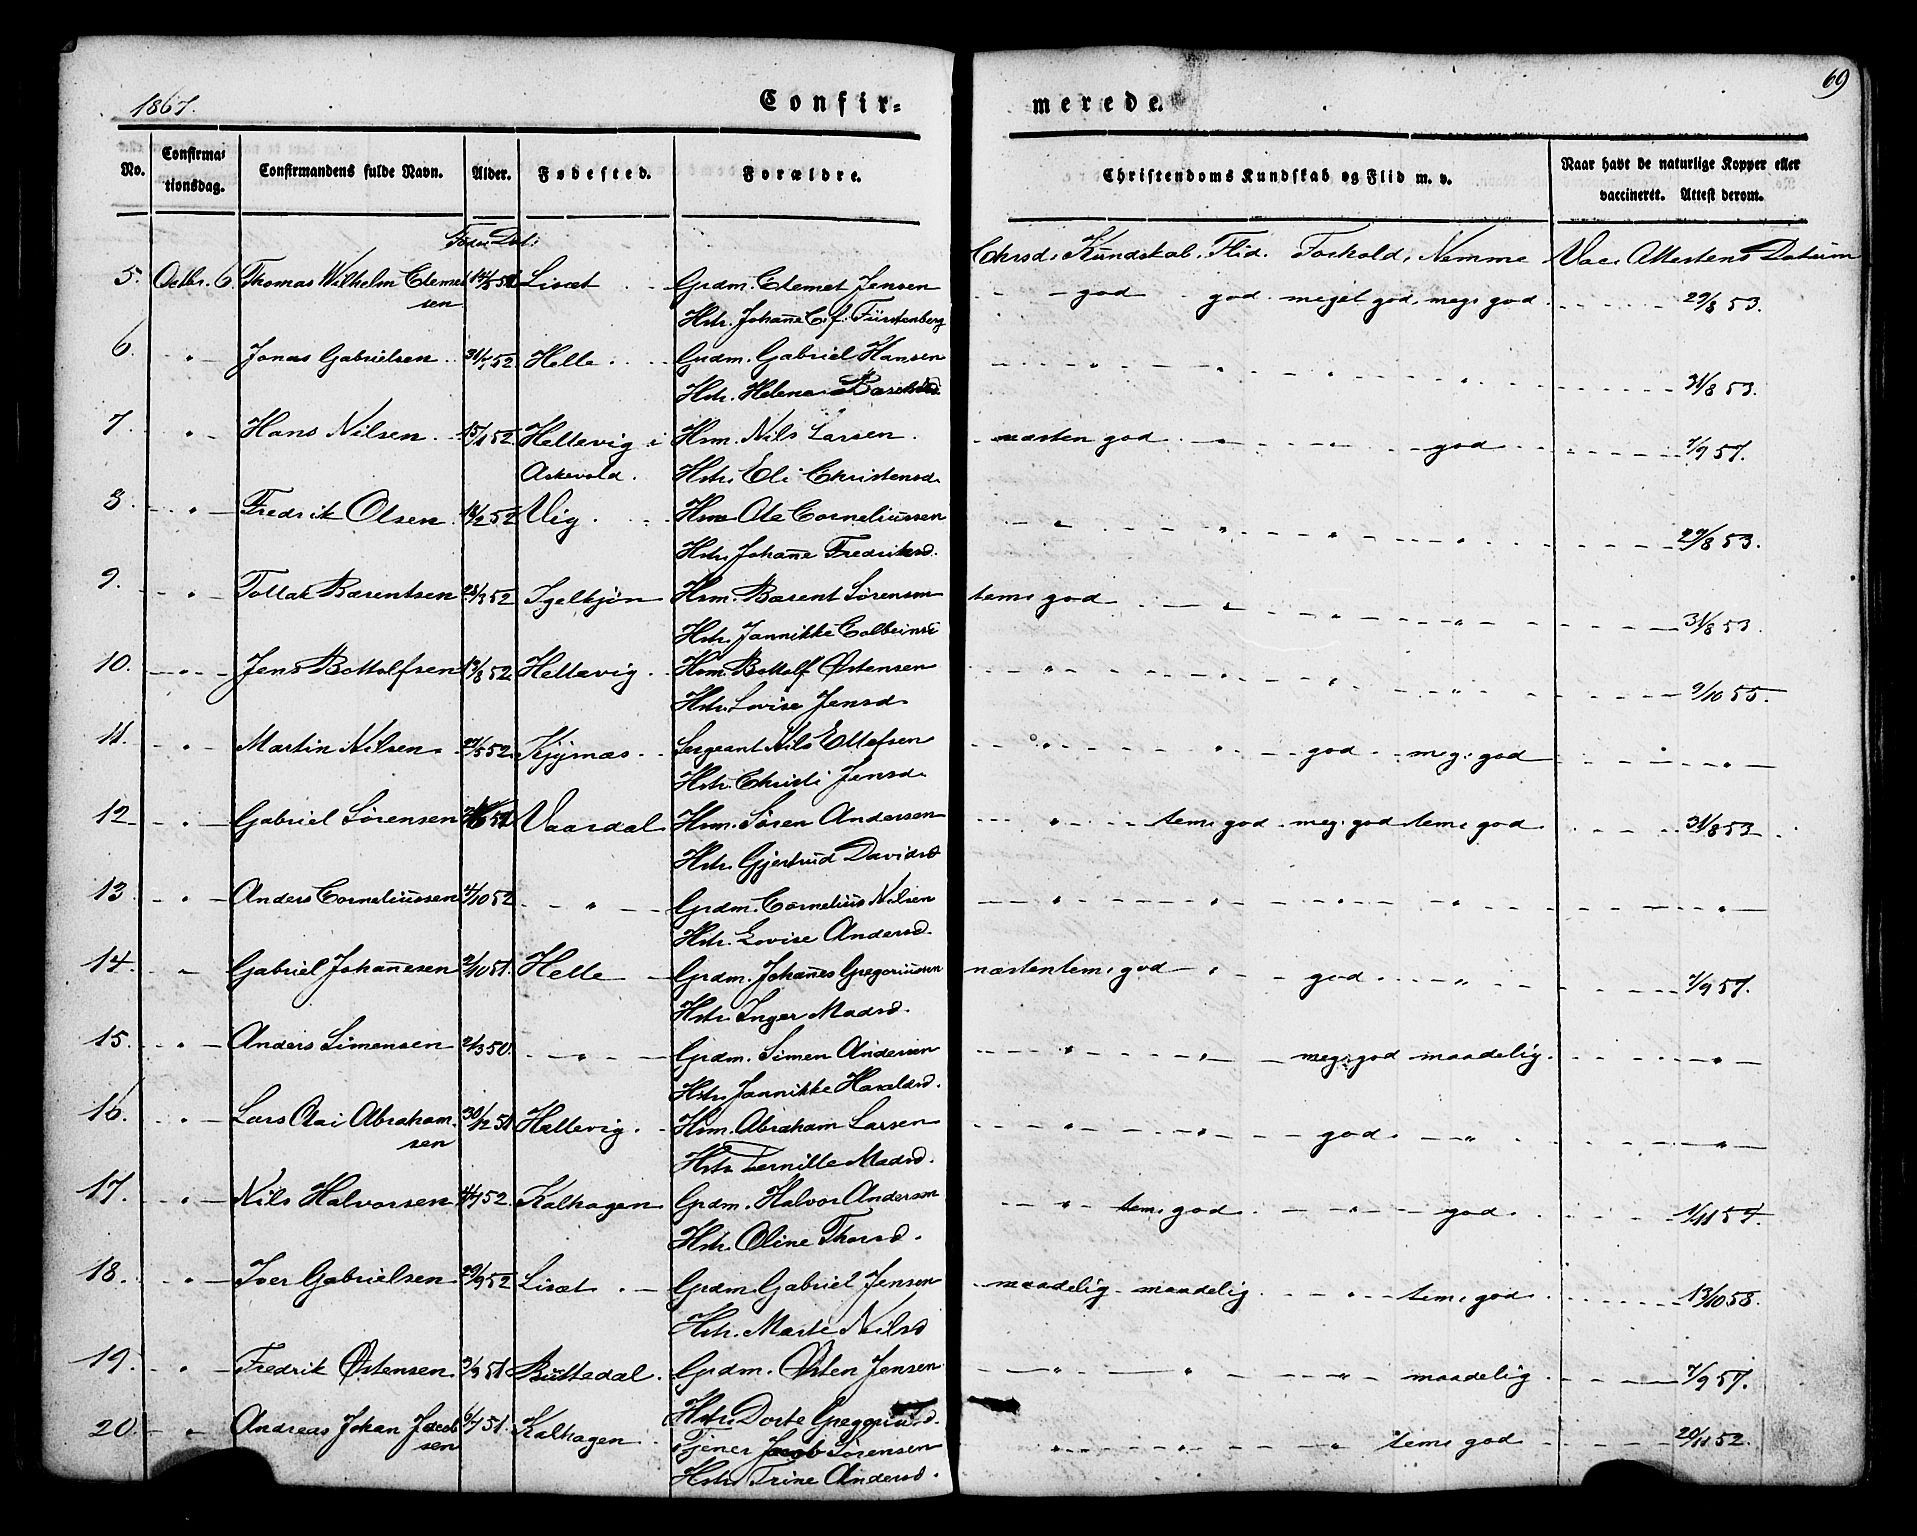 1867.
Confir=
merede.
69
No.
Confirma=
tionsdag.
Confirmandens fulde Navn.
Alder.
Fødested.
Forældre.
Christendoms Kundskab og Flid m. v.
Naar havt de naturlige Kopper eller
vaccineret. Attest derom.
Chrsd: Kundskab. Flid. Forhold. Nemme Vac: Attestens Datum
5. Octbr. 6. Thomas Wilhelm Clemet Liset Grdm. Clemet Jensen god god meget god. meg: god. 29/8 53.
sen Hstr. Johanne C. f. Fürstenberg
6. " Jonas Gabrielsen 31/1 52 Helle Grdm. Gabriel Hansen " " " " 31/8 53.
Hstr. Helene
7. " Hans Nilsen 15/1 52 Hellevig i Hsm. Nils Larsen næsten god " " god 7/9 57.
Askevold. Hstr. Eli Christensd.
8. " Fredrik Olsen 52 Vig Hsm Ole Corneliussen " " " " 29/8 53.
Hstr. Johanne Fredriksd.
9. " Tollak Bærentsen 52 Igelkjøn Hsm. Bærent Sørensen tem: god " " " 31/8 53.
Hstr. Jannikke Colbeinsd
10. " Jens Bottolfsen 52 Hellevig Hsm. Bottolf Østensen " " " " 9/10 55.
Hstr. Lovise Jensd.
11. " Martin Nilsen 27/5 52 Sergeant Nils Ellefsen " " god meg: god " "
Hstr. Christi Jensd.
12 " Gabriel Sørensen Vaardal Hsm. Søren Andersen " tem: god meg: god tem: god 31/8 53
Hstr. Gjertrud Davidsd
13 " Anders Corneliussen 4/10 52 " Grdm. Cornelius Nilsen " " " " "
Hstr. Lovise Andersd.
14. " Gabriel Johannesen 2/10 51. Helle Grdm. Johannes Gregoriussen næsten tem: god " god " 7/9 57.
Hstr. Inger Madsd.
15. " Anders Simensen 2/3 50. " Grdm. Simen Andersen " " meg: god maadelig. "
Hstr. Jannikke Haraldsd.
16. " Lars Olai Abraham 30/12 51 Hellevig. Hsm. Abraham Larsen " " god " "
sen Hstr. Pernille Madsd.
17. " Nils Halvorsen 52. Kalhagen Grdm. Halvor Andersen " tem: god " god 1/11 57.
Hstr. Oline Thorsd.
18. " Iver Gabrielsen 29/9 52 Liset Grdm. Gabriel Jensen maadelig maadelig " tem: god 13/10 58.
Hstr. Marte Nilsd
19. " Fredrik Østensen 3/9 51 Buttedal. Grdm. Østen Jensen " " " maadelig. 7/9 57.
Hstr. Dorte
20. " Andreas Johan Jacob 51. Kalhagen Tjener Jacob Sørensen " " " tem: god 20/11 52.
sen Hstr. Trine Andersd.